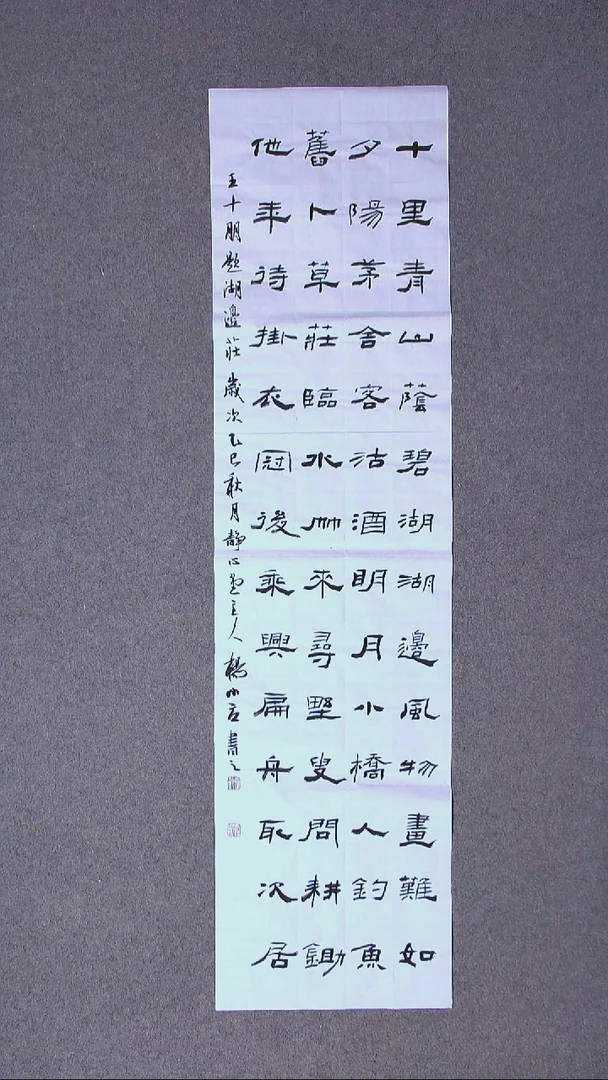 十里青山蔭碧湖湖邊風物畫難如
夕陽茅舍客沽酒明月小橋人釣魚
舊卜草莊臨水竹來尋野叟問耕鋤
他年待掛衣冠後乘興扁舟取次居
王十朋題湖邊莊歲次乙巳秋月靜心齋主人書之